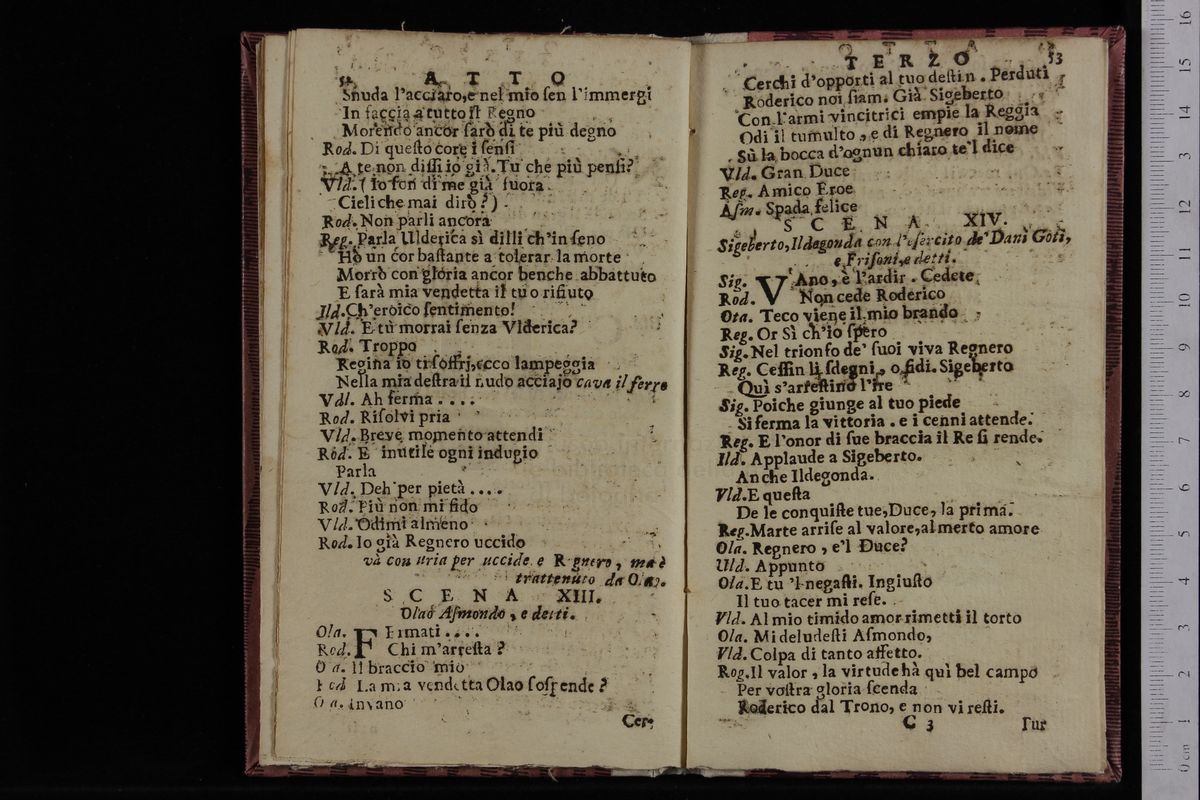 52 A T T O
Snuda l'acciaro, e nel mio ſen l'immergi
In faccia a tutto il Regno
Morendo ancor ſarò di te più degno
Rod. Di queſto core i ſenſi
A te non diſſi io già. Tu che più penſi?
Vld. ( Io ſon di me già fuora.
Cieli che mai dirò? )
Rod. Non parli ancora
Reg. Parla Ulderica sì dilli ch'in ſeno
Hò un cor baſtante a tolerar la morte
Morrò con gloria ancor benche abbattuto
E ſarà mia vendetta il tuo rifiuto
Ild. Ch'eroico ſentimento!
Vld. E tù morrai ſenza Vlderica?
Rod. Troppo
Regina io ti ſoffrj, ecco lampeggia
Nella mia deſtra il nudo acciajo cava il ferro
Vdl. Ah ferma . . . .
Rod. Riſolvi pria
Vld. Breve momento attendi
Rod. E inutile ogni indugio
Parla
Vld. Deh per pietà . . . .
Rod. Più non mi fido
Vld. Odimi almeno
Rod. Io già Regnero uccido
và con uria per uccide e R gnero, ma è
trattenuto da Olao.
S C E N A XIII.
Olao Aſmondo, e detti.
Ola. F Ermati . . . .
Rod. Chi m'arreſta?
O a. Il braccio mio
La mia vendetta Olao ſoſpende?
O a. Invano
Cer-
TERZO 53
Cerchi d'opporti al tuo deſtin. Perduti
Roderico noi ſiam. Già Sigeberto
Con l'armi vincitrici empie la Reggia
Odi il tumulto, e di Regnero il nome
Sù la bocca d'ognun chiaro te'l dice
Vld. Gran Duce
Reg. Amico Eroe
Aſm. Spada felice
S C E N A XIV.
Sigeberto, Ildegonda con l'eſercito de' Dani Goti,
e Friſoni, e detti.
Sig. V Ano, è l'ardir. Cedete
Rod. Non cede Roderico
Ota. Teco viene il mio brando
Reg. Or Sì ch'io ſpero
Sig. Nel trionfo de' ſuoi viva Regnero
Reg. Ceſſin li ſdegni, o fidi. Sigeberto
Quì s'arreſtino l'ire
Sig. Poiche giunge al tuo piede
Si ferma la vittoria. e i cenni attende.
Reg. E l'onor di ſue braccia il Re ſi rende.
Ild. Applaude a Sigeberto.
Anche Ildegonda.
Vld. E queſta
De le conquiſte tue, Duce, la prima.
Reg. Marte arriſe al valore, al merto amore
Ola. Regnero, e'l Duce?
Uld. Appunto
Ola. E tu 'l negaſti. Ingiuſto
Il tuo tacer mi reſe.
Vld. Al mio timido amor rimetti il torto
Ola. Mi deludeſti Aſmondo,
Vld. Colpa di tanto affetto.
Rog. Il valor, la virtude hà quì bel campo
Per voſtra gloria ſcenda
Roderico dal Trono, e non vi reſti.
C 3 Tur